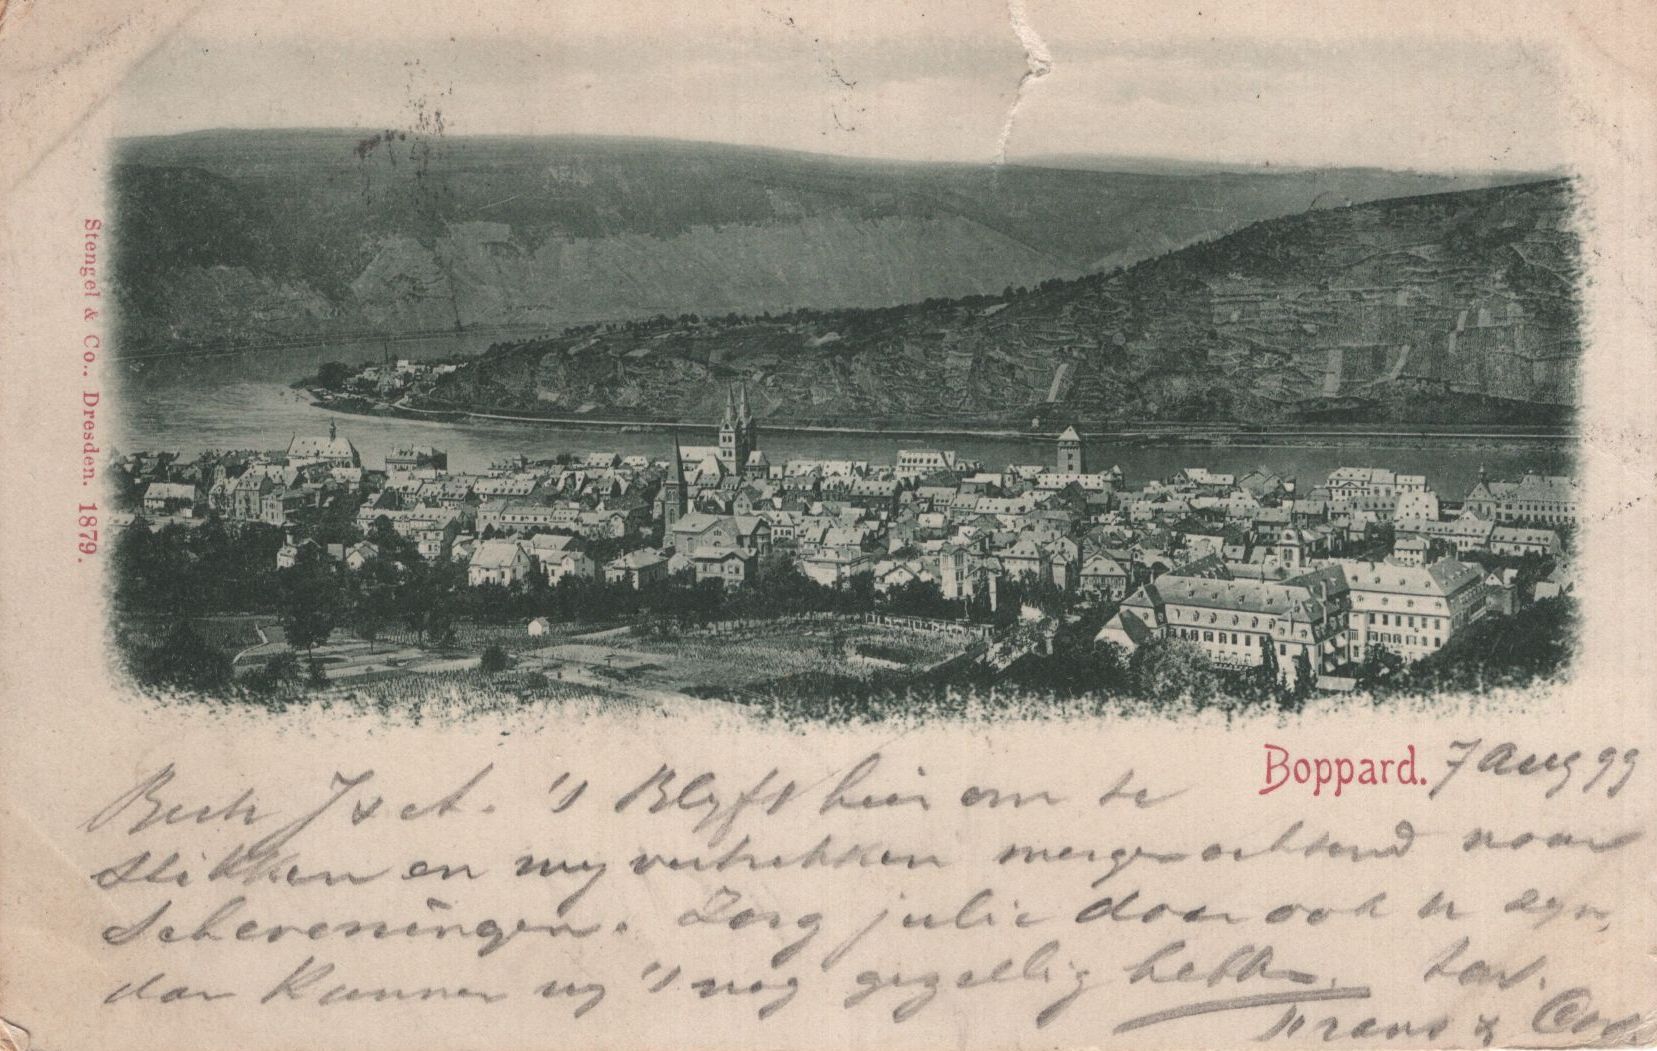 Stengel & Co., Dresden. 1879.
Boppard. 7 Aug 99
't Blyft hier om te
stikken en wy vertrekken morgenochtend naar
Scheveningen. Zorg julie daar ook te zyn,
dan kunnen wy 't nog gezellig hebben.
Frans &